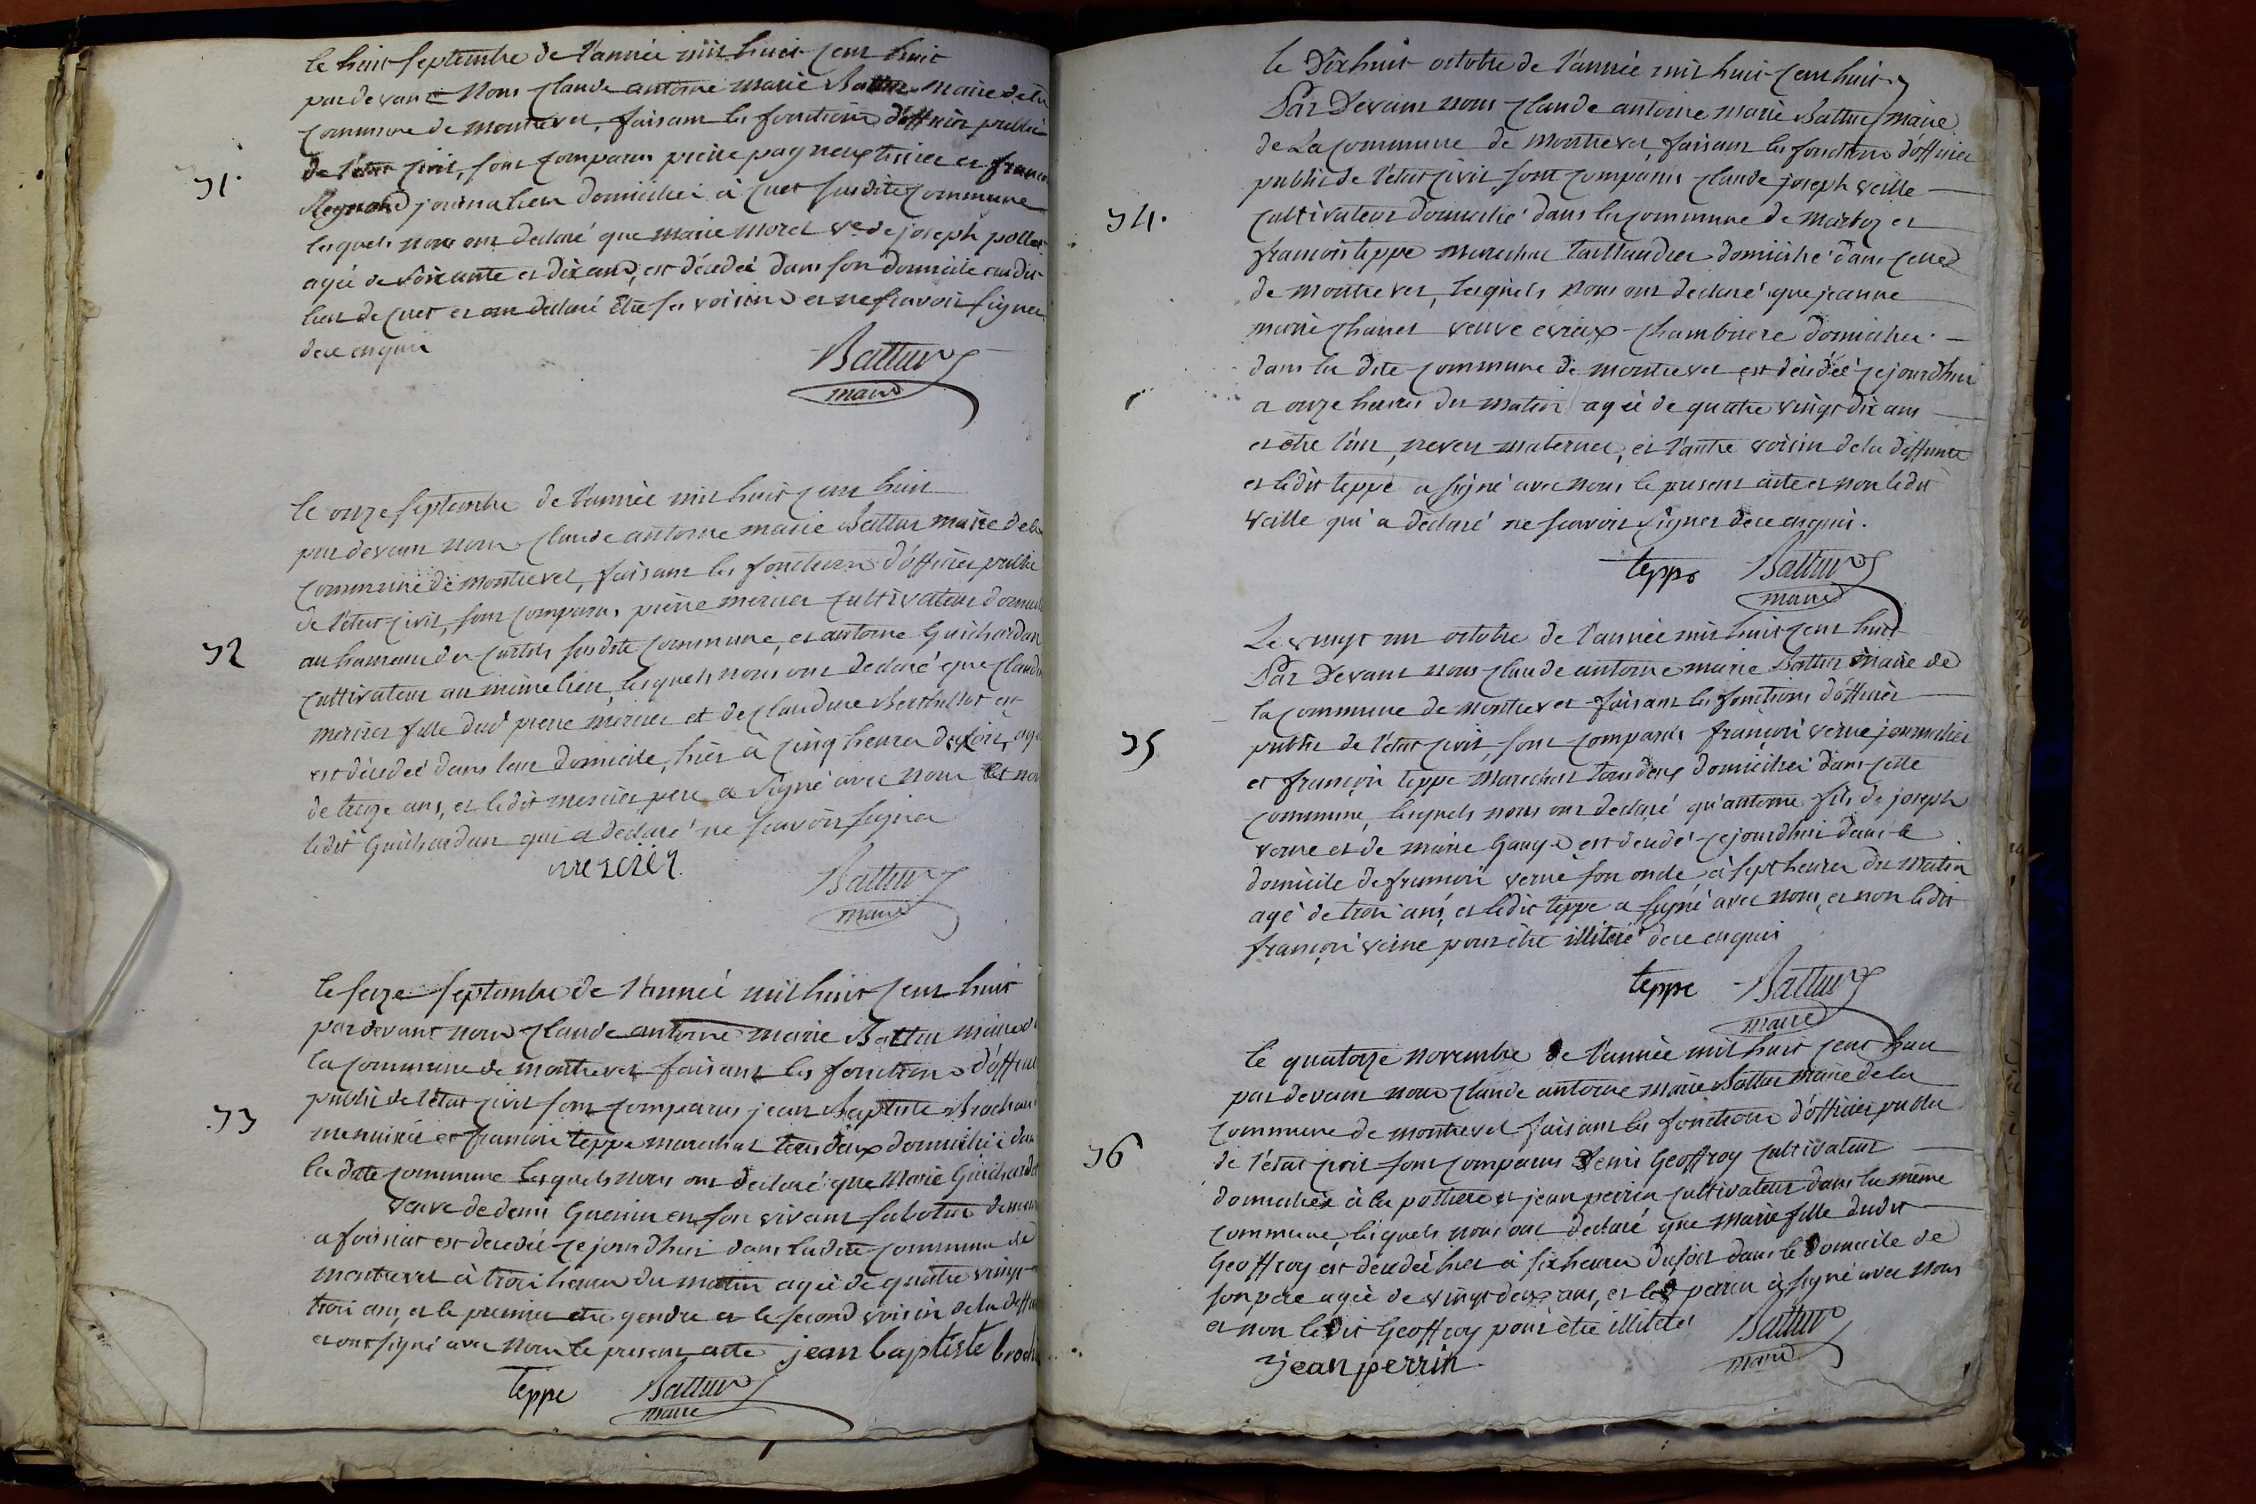 le huit septembre de l'année mil huit cent huit
pardevant Nous Claude antoine marie Battur Maire de la
Commune de montrevel, faisant les fonctions d'officier public
31.
de l'état civil, sont comparus pierre pagneux tissier et franç
Reynaud journalier domiciliés à Cuet susdite Commune
lesquels nous ont declaré que marie morel ve de joseph
agée de soixante et dix ans, est décédée dans son domicile audit
lieu de Cuet et ont declaré être ses voisins et ne sçavoir signer
de ce enquis
Battur
maire
le onze septembre de l'année mil huit cent huit
par devant nous Claude antoine marie Battur maire de la
Commune de montrevel, faisant les fonctions d'officier public
de l'état civil, sont comparus, pierre mercier cultivateur domici
32
au hameau des Curtils susdite Commune, et antoine Guichardan
cultivateur au même lieu, lesquels nous ont declaré que Claud
mercier fille dud pierre mercier et de Claudine Berthillot
est décédée dans leur domicile, hier à cinq heures du soir, agé
de treize ans, et ledit mercier pere a signé avec nous et non
ledit Guichardan qui a declaré ne scavoir signer
mercier
Battur
maire
le seize septembre de l'année mil huit cent huit
pardevant nous Claude antoine marie Battur maire d
la Commune de montrevel faisant les fonctions d'officier
public de l'état civil sont comparus jean Baptiste Brochan
33
menuisier et francois teppe marechal tous deux domiciliés dans
la dite commune lesquels nous ont declaré que Marie Guichard
veuve de denis Guerin en son vivant sabotier demeur
a foissiat est decedée cejourdhui dans ladite commune de
montrevel à trois heures du matin agée de quatre vingt
trois ans, et le premier etre gendre et le second voisin de la deffu
et ont signé avec nous le present acte jean baptiste broch
teppe Battur
maire
le Dix huit octobre de l'année mil huit cent huit
Par Devant nous Claude antoine marie Battur maire
de La commune de Montrevel, faisant les fonctions d'officier
public de l'état civil sont comparus Claude joseph veille
34.
cultivateur domicilié dans la commune de Marboz et
francois teppe marechal taillandier domicilié dans celle
de montrevel, lesquels nous ont declaré que jeanne
marie veuve domiciliée
dans la dite commune de montrevel est décédée cejourdhui
a onze heures du matin agée de quatre vingt dix ans
et etre l'un, neveu maternel, et l'autre voisin de la deffunte
et ledit teppe a signé avec nous le present acte et non ledit
veille qui a déclaré ne scavoir signer de ce enquis.
teppe Battur
maire
Le vingt un octobre de l'année mil huit cent huit
Par Devant nous Claude antoine marie Battur maire de
la commune de montrevel faisant les fonctions d'officier
35
public de l'état civil, sont comparus françois verne journalier
et françois teppe marechal tous deux domiciliés dans cette
commune, lesquels nous ont declaré qu'antoine fils de joseph
verne et de marie Gauge est décédé cejourdhui dans le
domicile de francois verne son oncle, à sept heures du matin
agé de trois ans, et ledit teppe a signé avec nous, et non ledit
françois verne pour être illiteré de ce enquis
teppe Battur
maire
le quatorze novembre de l'année mil huit cent huit
par devant nous Claude antoine Marie Battur maire de la
commune de montrevel faisant les fonctions d'officier public
36
de l'état civil sont comparus Denis Geoffroy cultivateur
domicilié à la pottiere et jean perrin cultivateur dans la même
commune, lesquels nous ont declaré que marie fille dudit
Geoffroy est décédée hier à six heures du soir dans le Domicile de
son pere agée de vingt deux ans, et led perrin a signé avec nous
et non ledit Geoffroy pour être illiteré
jean perrin.
Battur
maire